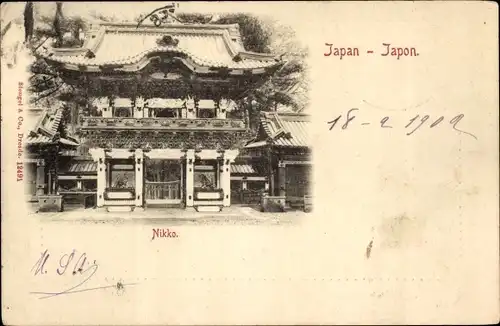 Japan - Japon.
18-2 1902
Stengel & Co., Dresde. 12491
Nikko.